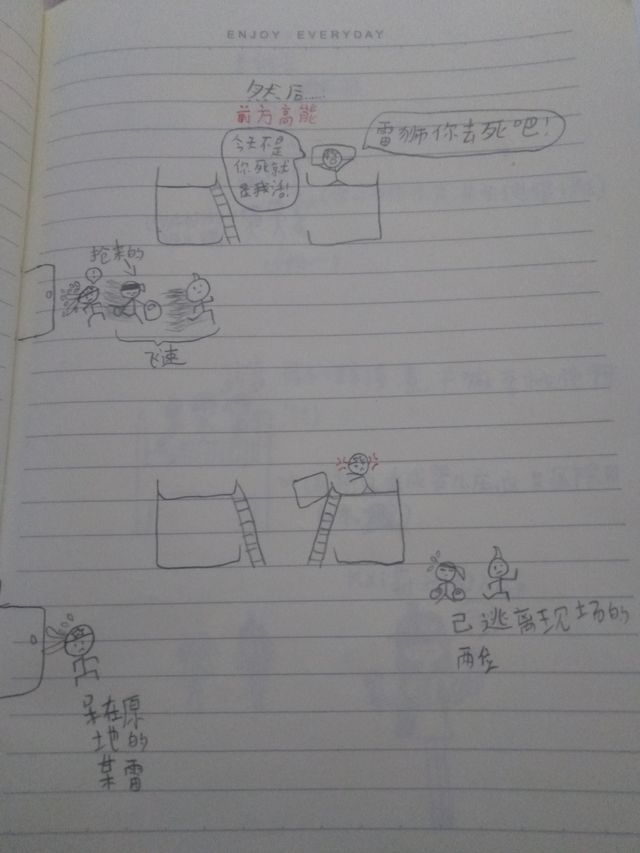 ENJOY EVERYDAY
然后......
前方高能
雷狮你去死吧!
今天不是
你死就
是我活!
抢来的
!
飞速
已逃离现场的
两位
呆在原
地的
某雷